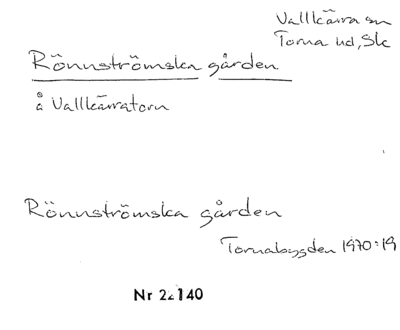 Vallkärra sn
Torna hd, Sk
Rönnströmska gården
å Vallkärratorn
Rönnströmska gården
Tornabygden 1970:19
Nr 22140